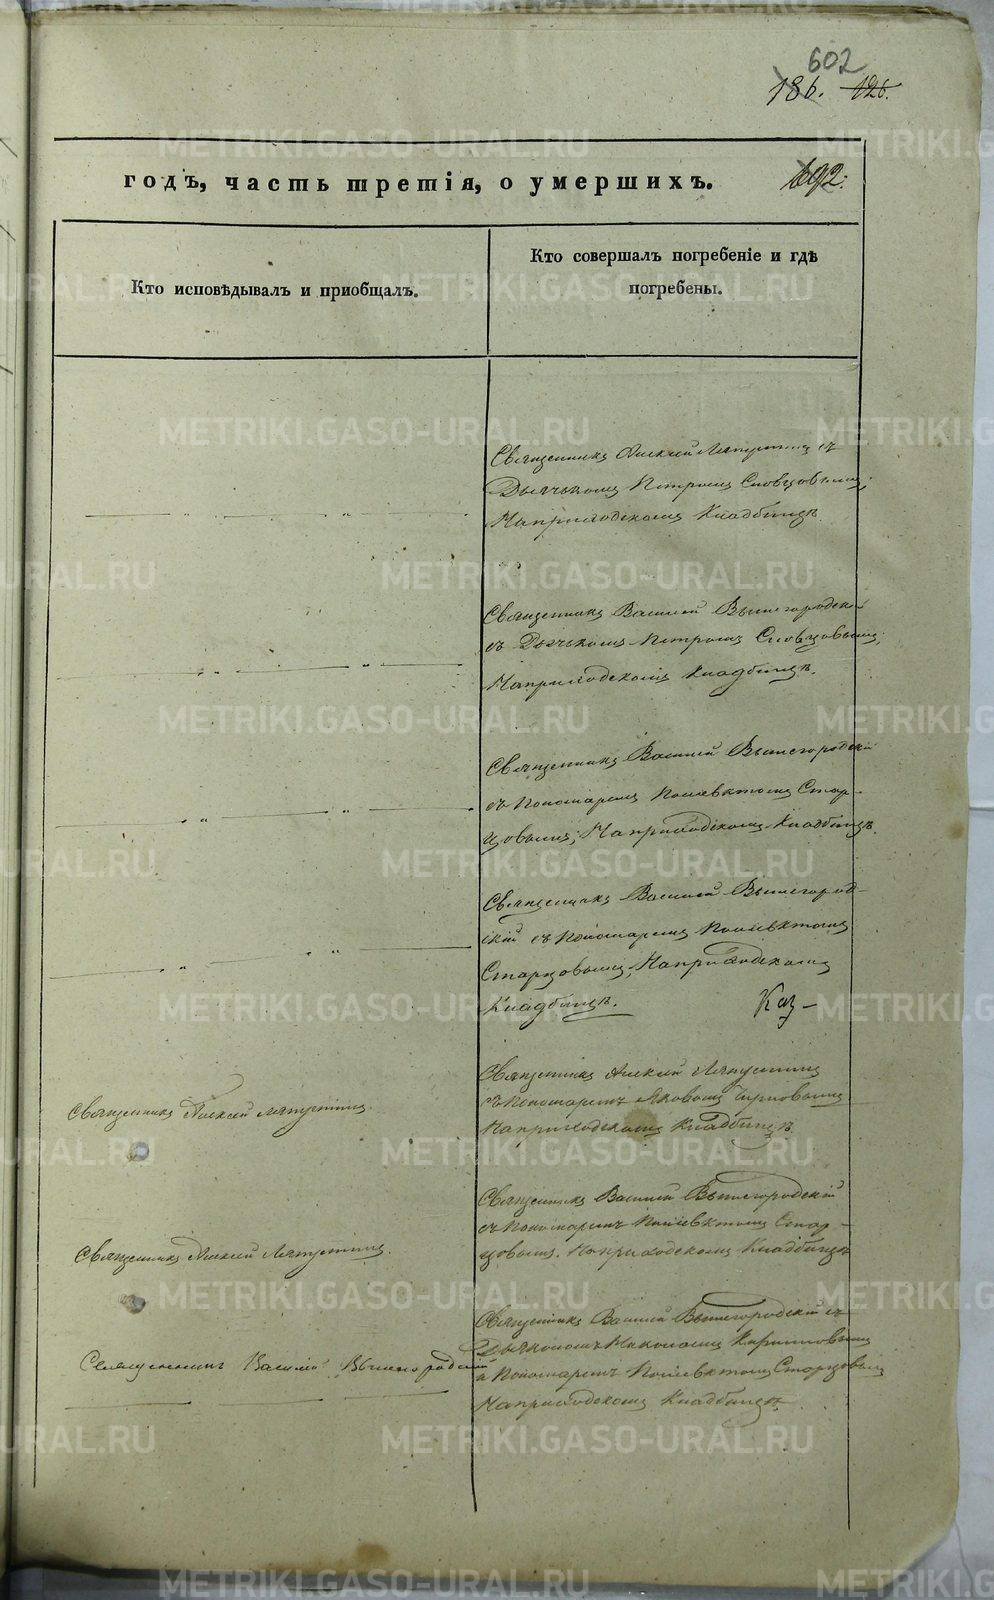 602
186. 126.
годъ, часть третія, о умершихъ. 192.
Кто исповѣдывалъ и приобщалъ.
Кто совершалъ погребеніе и гдѣ
погребены.
Священникъ Алексій Ляпустинъ съ
Дьячькомъ Петромъ Словцовымъ;
На приходскомъ Кладбищѣ
Священникъ Василій Вышегородскій
съ Дьячькомъ Петромъ Словцовымъ;
На приходскомъ Кладбищѣ.
Священникъ Василій Вышегородскій
съ Пономаремъ Поліевктомъ Стар-
цовымъ; На приходскомъ Кладбищѣ.
Священникъ Василій Вышегород-
скій съ Пономаремъ Поліевктомъ
Старцовымъ, На приходскомъ
Кладбищѣ. Каз-
Священникъ Алексій Ляпустинъ
Священникъ Алексій Ляпустинъ
съ Пономаремъ Яковомъ
На приходскомъ Кладбищѣ.
Священникъ Алексій Ляпустинъ.
Священникъ Василій Вышегородскій
съ Пономаремъ Поліевктомъ Стар-
цовымъ. На приходскомъ Кладбищѣ
Священникъ Василій Вышегородскій
Священникъ Василій Вышегородскій съ
Дьякономъ Николаемъ Кирилловымъ
и Пономаремъ Поліевктомъ Старцовымъ
На приходскомъ Кладбищѣ.
METRIKI.GASO-URAL.RU